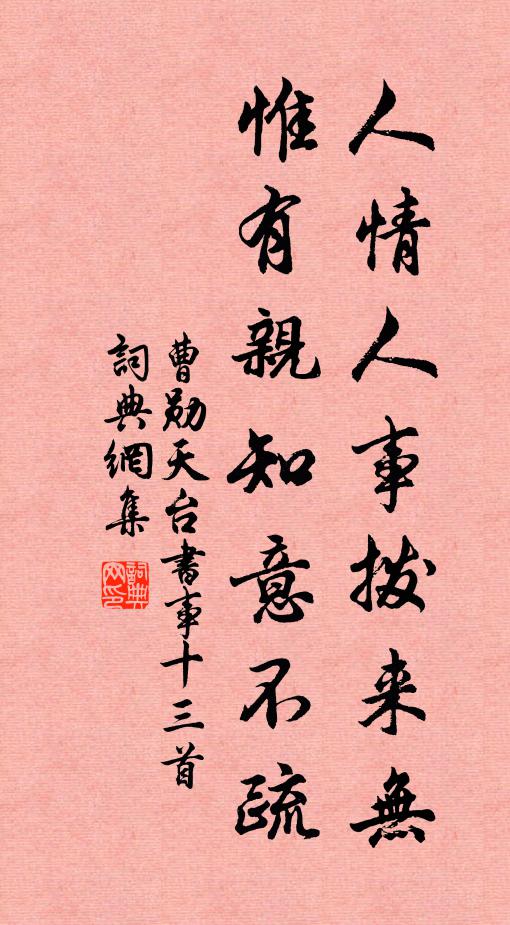 人情人事拨来無
惟有親知意不疏
曹勛天台書事十三首
詞典網集
詞典網印